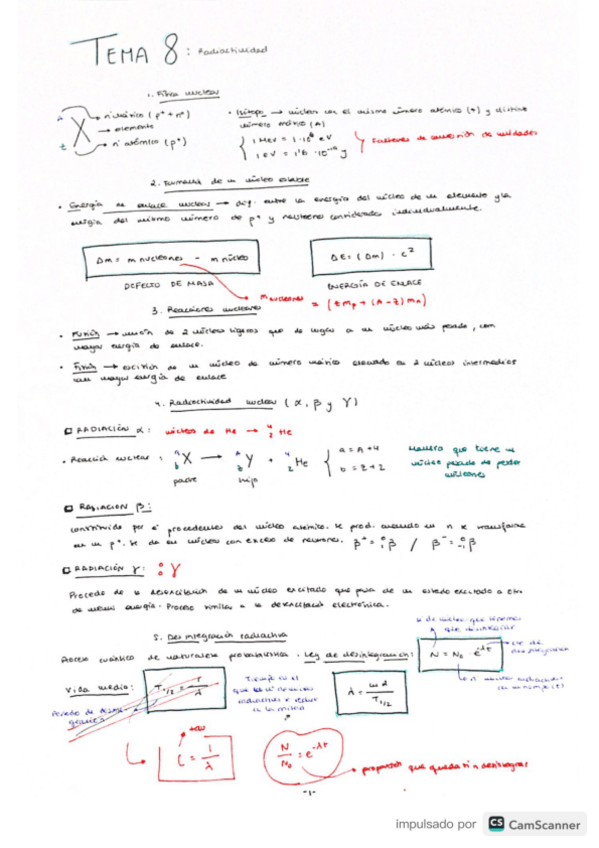 TEMA 8: Radiactividad
1. Física nuclear
A
X
Z
nº másico (p⁺ + n⁰)
elemento
nº atómico (p⁺)
• Isótopo → núcleos con el mismo número atómico (Z) y distinto
número másico (A)
{ 1 MeV = 1·10⁶ eV
{ 1 eV = 1'6 · 10⁻¹⁹ J
Factores de conversión de unidades
2. Formación de un núcleo estable
• Energía de enlace nuclear → dif. entre la energía del núcleo de un elemento y la
energía del mismo número de p⁺ y neutrones considerados individualmente.
Δm = m nucleones - m núcleo
ΔE = (Δm) · c²
DEFECTO DE MASA
ENERGÍA DE ENLACE
m nucleones = (Z mp + (A-Z) mn)
3. Reacciones nucleares
• Fusión → unión de 2 núcleos ligeros que da lugar a un núcleo más pesado, con
mayor energía de enlace.
• Fisión → escisión de un núcleo de número másico elevado en 2 núcleos intermedios
con mayor energía de enlace
4. Radiactividad nuclear (α, β y γ)
RADIACIÓN α: núcleos de He → ⁴₂He
• Reacción nuclear: ᵃ_b X → ᴬ_Z Y + ⁴₂He { a = A+4
b = Z+2
padre hijo
Manera que tiene un
núcleo pesado de perder
nucleones
RADIACIÓN β:
constituida por e⁻ procedentes del núcleo atómico. Se prod. cuando un n se transforma
en un p⁺. Se da en núcleos con exceso de neutrones. β⁺ = ⁰₁β / β⁻ = ⁰₋₁β
RADIACIÓN γ: ⁰₀γ
Procede de la desexcitación de un núcleo excitado que pasa de un estado excitado a otro
de menor energía. Proceso similar a la desexcitación electrónica.
5. Desintegración radiactiva
nº de núcleos que tenemos
que desintegrar
Proceso cuántico de naturaleza probabilística. Ley de desintegración: N = N₀ · e^-λt
cte de
desintegración
Vida media:
Tiempo en el
λ = ln 2 / T₁/₂
a la mitad
tau
τ = 1/λ
N/N₀ = e^-λt
proporción que queda sin desintegrar
-1-
impulsado por CS CamScanner